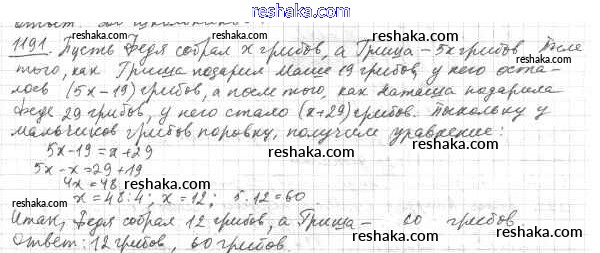 reshaka.ru
reshaka.ru
1191. Пусть Федя собрал x грибов, а Гриша - 5x грибов. После
того, как Гриша подарил Маше 19 грибов, у него оста-
лось (5x-19) грибов, а после того, как Наташа подарила
Феде 29 грибов, у него стало (x+29) грибов. Поскольку у
мальчиков грибов поровну, получим уравнение:
reshaka.ru
5x-19=x+29
5x-x=29+19
4x=48
reshaka.ru
x=48:4; x=12; 5·12=60
reshaka.ru
Итак, Федя собрал 12 грибов, а Гриша - 60 грибов.
Ответ: 12 грибов, 60 грибов.
reshaka.ru
reshaka.ru